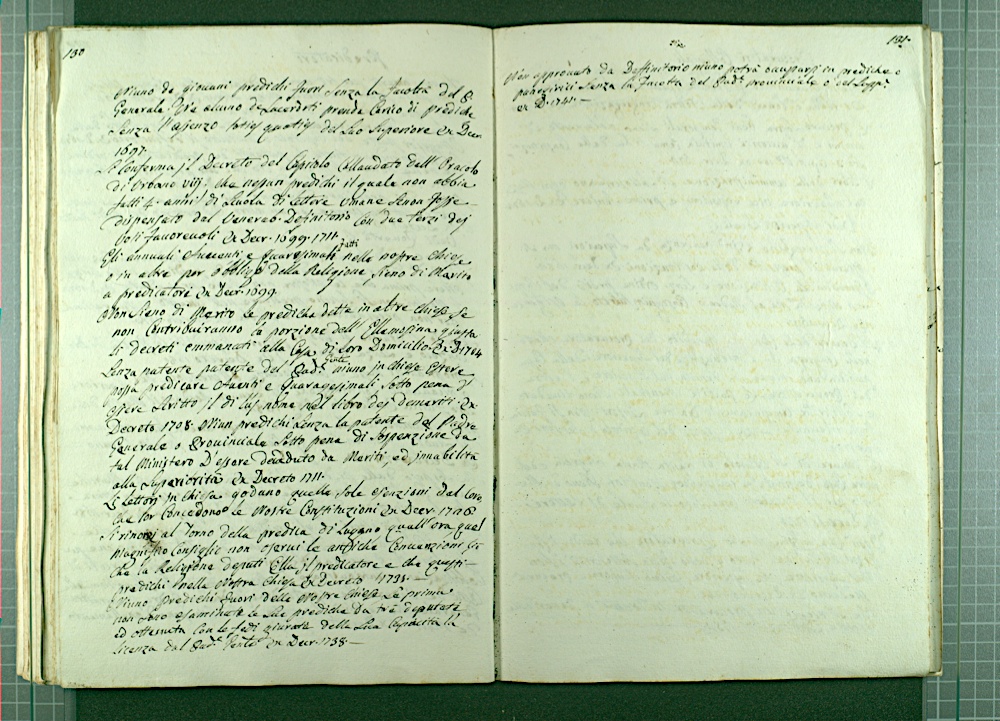 130
Niuno de giovani predichi fuori senza la facoltà del P.
Generale. Ne alcuno de Sacerdoti prenda carico di prediche
senza l'assenzo toties quoties del suo Superiore Ex Decr.
1697.
Si conferma il Decreto del Capitolo Collaudato dall'Oracolo
di Urbano viij. che nessun predichi il quale non abbia
fatti 4. anni di scuola di lettere umane senon fosse
dispensato dal Venerab. Definitorio con due terzi dei
Voti favorevoli Ex Decr. 1699. 1711.
Gli annuali Avventi e Quaresimali fatti nelle nostre chiese
o in altre per obbligo della Religione sieno di Merito
a predicatori Ex Decr. 1699
Non sieno di Merito le prediche dette in altre chiese se
non contribuiranno la porzione dell'Ellemosina giusta
li decreti emmanati alla Casa di loro Domicilio. Ex D. 1704
Senza patente del Pad. niuno in chiese estere
possa predicare Aventi e Quaragesimali sotto pena d'
essere scritto il di lui nome nel libro dei demeriti. Ex
Decreto 1708. Niun predichi senza la patente del Padre
Generale o Provinciale sotto pena di sospenzione da
tal Ministero d'essere decaduto da Meriti, ed innabilità
alla Superiorità Ex Decreto 1711.
Li Lettori in chiesa godano quelle sole esenzioni dal Coro
che lor concedono le Nostre Constituzioni Ex Decr.
Si rinonzi al Torno della predica di Lugano quall'ora quel
Magnifico Consiglio non osservi le antiche Convenzioni
che la Religione deputi Ella il predicatore e che questi
predichi nella Nostra chiesa Ex Decreto 1731.
Niuno predichi fuori delle Nostre chiese se prima
non sono esaminate le sue prediche da tre deputati
ed ottenuta con le fedi giurate della sua capacità la
licenza dal Ex Decr. 1738.
131.
Non approvato da Deffinitorio niuno potrà occuparsi in prediche o
panegirici senza la facoltà del Pad.e provinciale o del
ex D. 1741.